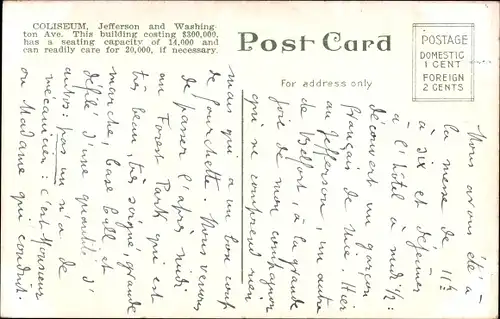 COLISEUM, Jefferson and Washing-
ton Ave. This building costing $300,000,
has a seating capacity of 14,000 and
can readily care for 20,000, if necessary.
Post Card
For address only
POSTAGE
DOMESTIC
1 CENT
FOREIGN
2 CENTS
Nous avons été à
la messe de 11 h
à dix et déjeuner
à l'hôtel à midi 1/2:
découvert un garçon
français de Nice. Hier
au Jefferson, un autre
de Belfort, à la grande
joie de mon compagnon
qui ne comprend rien
mais qui a un bon coup
de fourchette. Nous venons
de passer l'après midi
au Forest Park qui est
très beau, très soigné, grande
marche, base ball et
défilé d'une quantité d'
autos: pas un n'a de
mécanicien c'est Monsieur
ou Madame qui conduit.